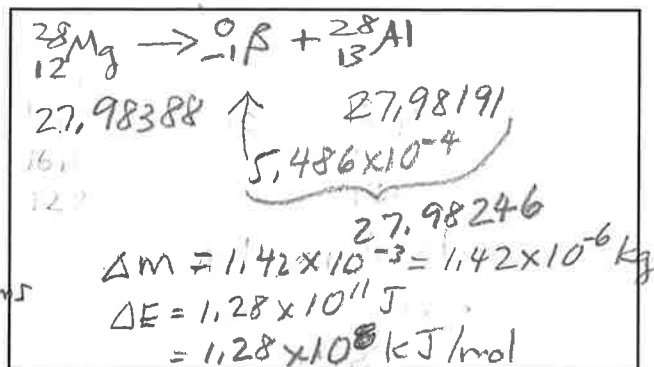 ²⁸₁₂Mg → ⁰₋₁β + ²⁸₁₃Al
27.98388 ↑ 27.98191
5.486×10⁻⁴
27.98246
Δm = 1.42×10⁻³ = 1.42×10⁻⁶ kg
ΔE = 1.28×10¹¹ J
= 1.28×10⁸ kJ/mol